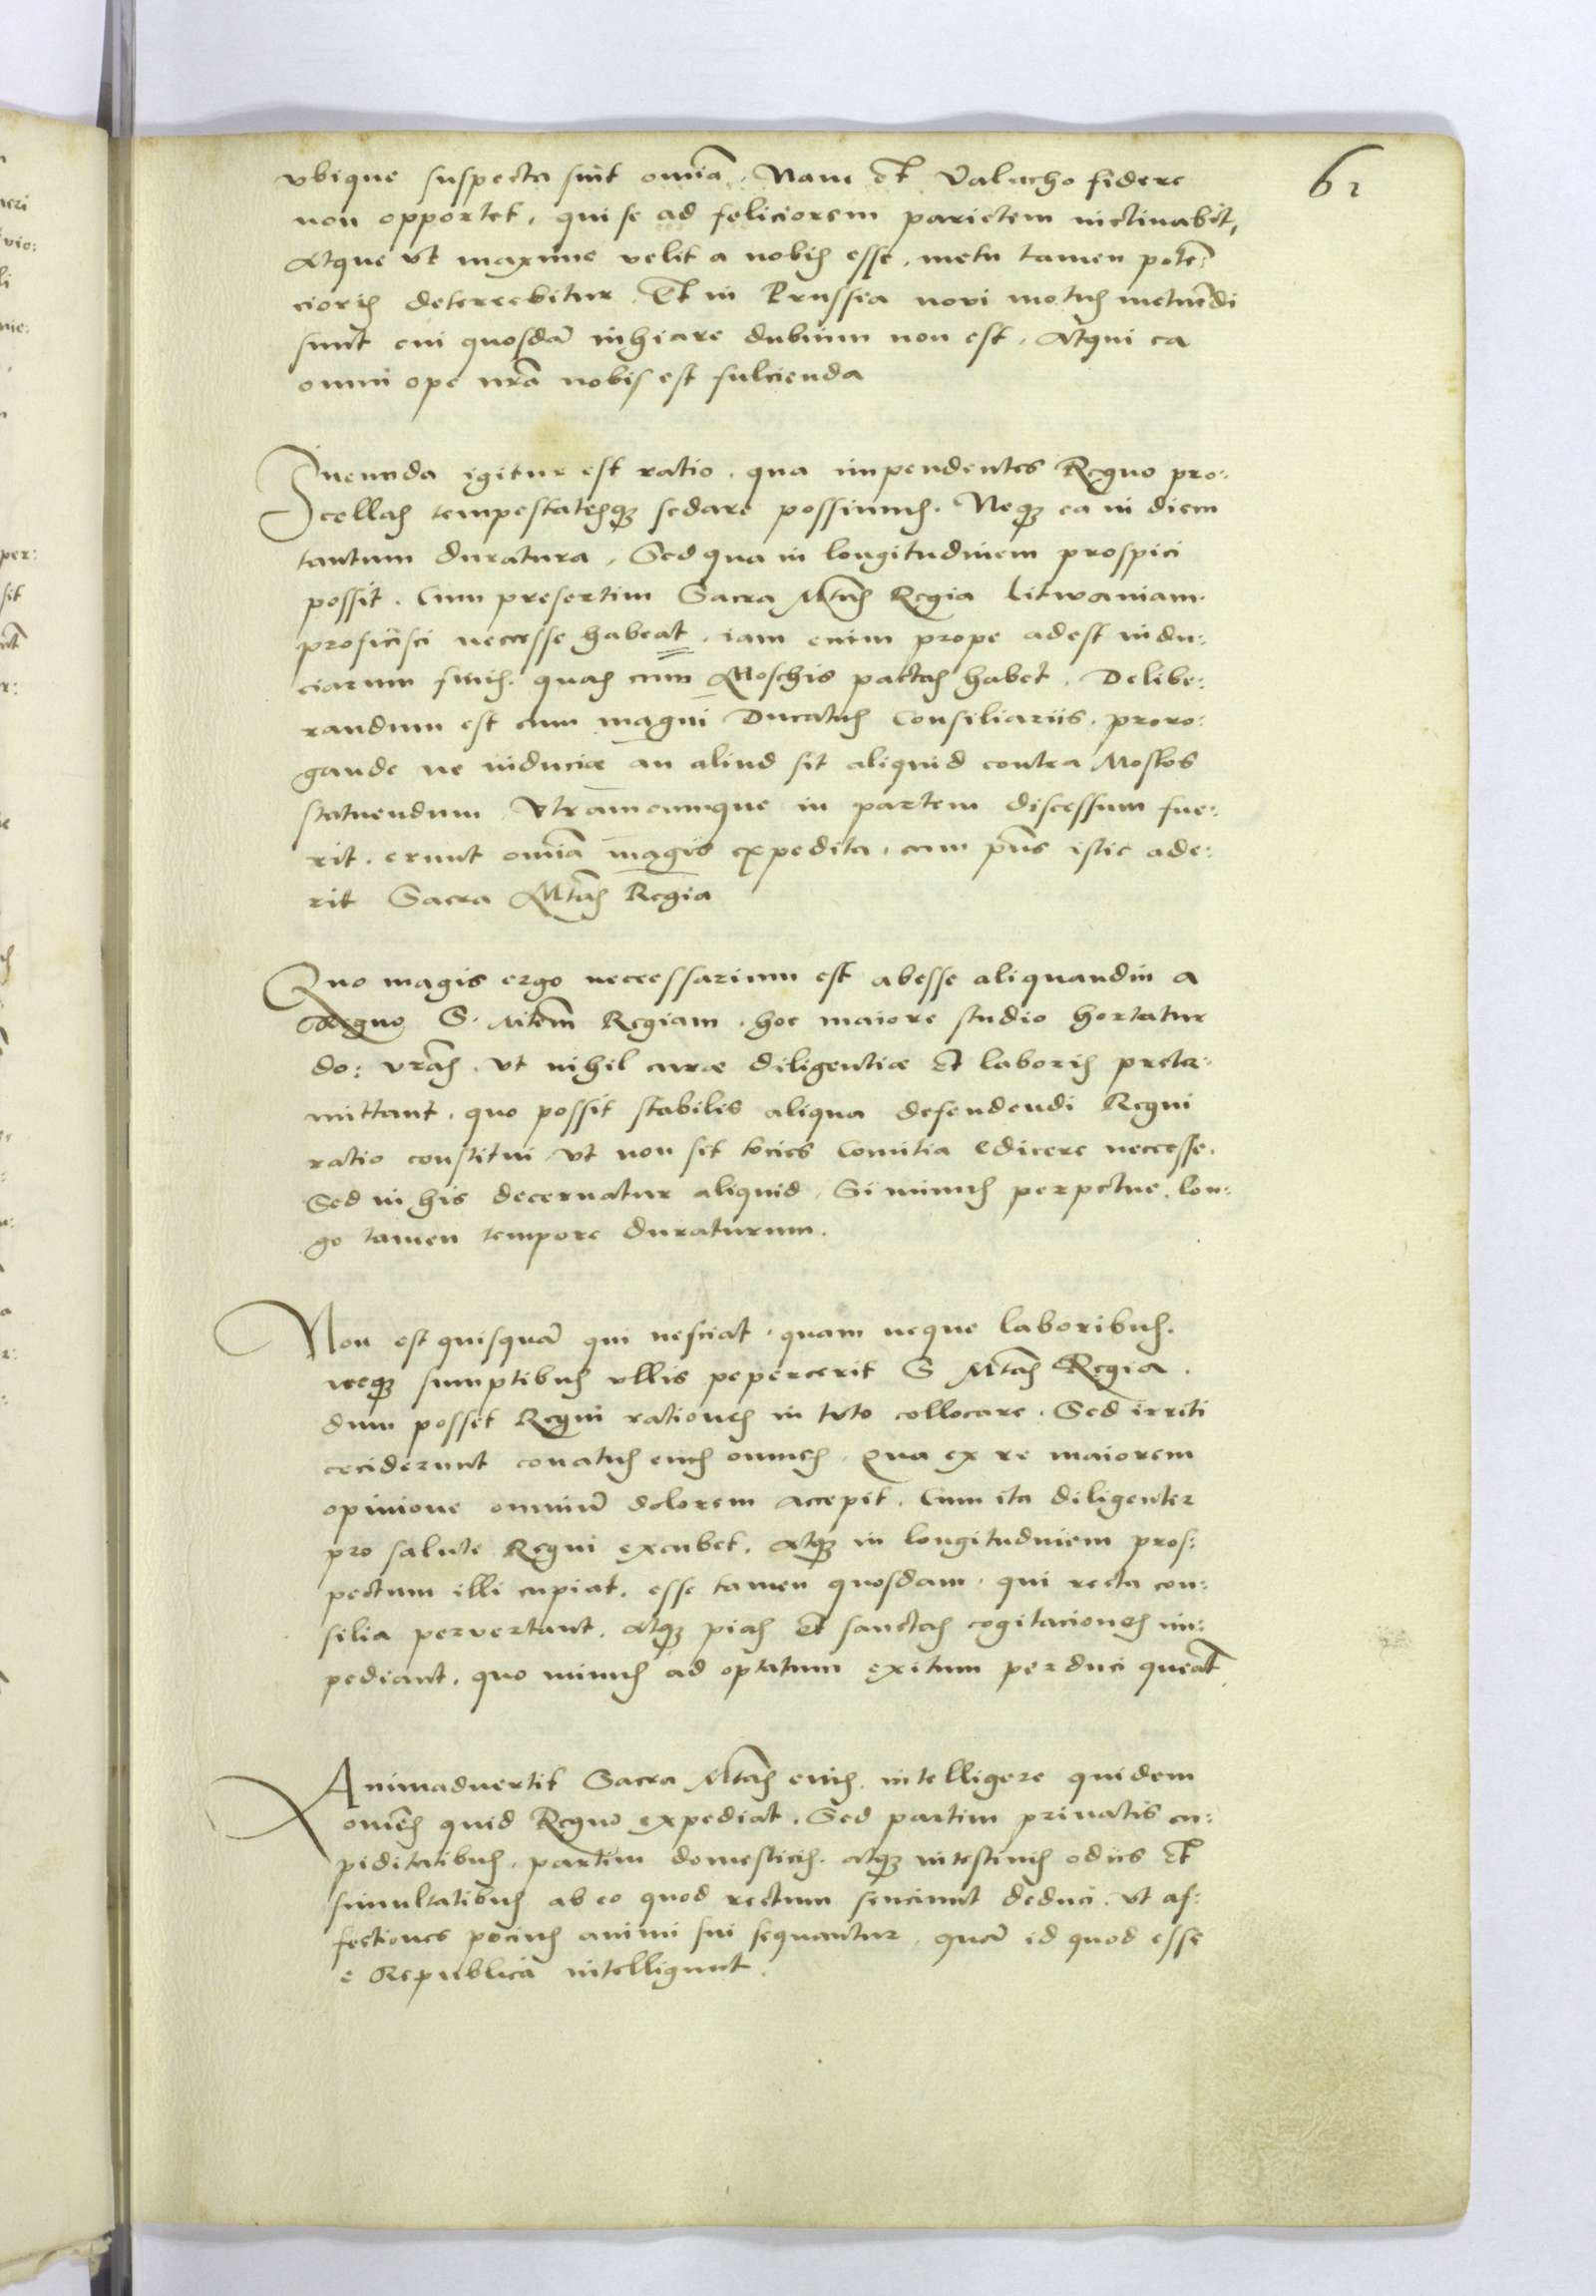 61
vbique suspecta sint omīa. Nam et Valacho fidere
non opportet, qui se ad feliciorem parietem inclinabit,
Atque vt maxime velit a nobis esse, metu tamen potē:
cioris deterrebitur. Et in Prussia novi motus metuēdi
sunt cui quosdā inhiare dubium non est, Atqui ea
omni ope nrā nobis est fulcienda
Ineunda igitur est ratio, qua impendentes Regno pro:
cellas tempestatesq; sedare possimus. Neq; ea in diem
tantum duratura, Sed qua in longitudinem prospici
possit. Cum presertim Sacra Mtās Regia Litwaniam
proficisci neccesse habeat, iam enim prope adest indu:
ciarum finis, quas cum Moschis pactas habet. Delibe:
randum est cum magni Ducatus Consiliariis, proro:
gande ne induciæ an aliud sit aliquid contra Moscos
statuendum, Vtramcumque in partem discessum fue:
rit, erunt omīa magis expedita, cum pn̄s istic ade:
rit Sacra Mtās Regia
Quo magis ergo neccessarium est abesse aliquandiu a
Regno S. Mtem̄ Regiam, hoc maiore studio hortatur
do: vrās, vt nihil curæ diligentiæ et laboris preter:
mittant, quo possit stabilis aliqua defendendi Regni
ratio constitui, vt non sit tocies Comitia edicere neccesse.
Sed in his decernatur aliquid, Si minus perpetue, lon:
go tamen tempore duraturum.
Non est quisquā qui nesciat, quam neque laboribus,
neq; sumptibus vllis pepercerit S Mtās Regia,
dum posset Regni rationes in tuto collocare. Sed irriti
ceciderunt conatus eius omnes, Qua ex re maiorem
opinione omniū dolorem accepit, Cum ita diligenter
pro salute Regni excubet, Atq; in longitudinem pros:
pectum illi cupiat, esse tamen quosdam, qui recta con:
silia pervertant, Atq; pias et sanctas cogitaciones im:
pediant, quo minus ad optatum exitum perduci queāt.
Animaduertit Sacra Mtās eius, intelligere quidem
omēs quid Regno expediat, Sed partim priuatis cu:
piditatibus, partim domesticis, atq; intestinis odiis et
simultatibus ab eo quod rectum senciunt deduci, vt af:
fectiones pocius animi sui sequantur, quā id quod esse
e Republica intelligunt.